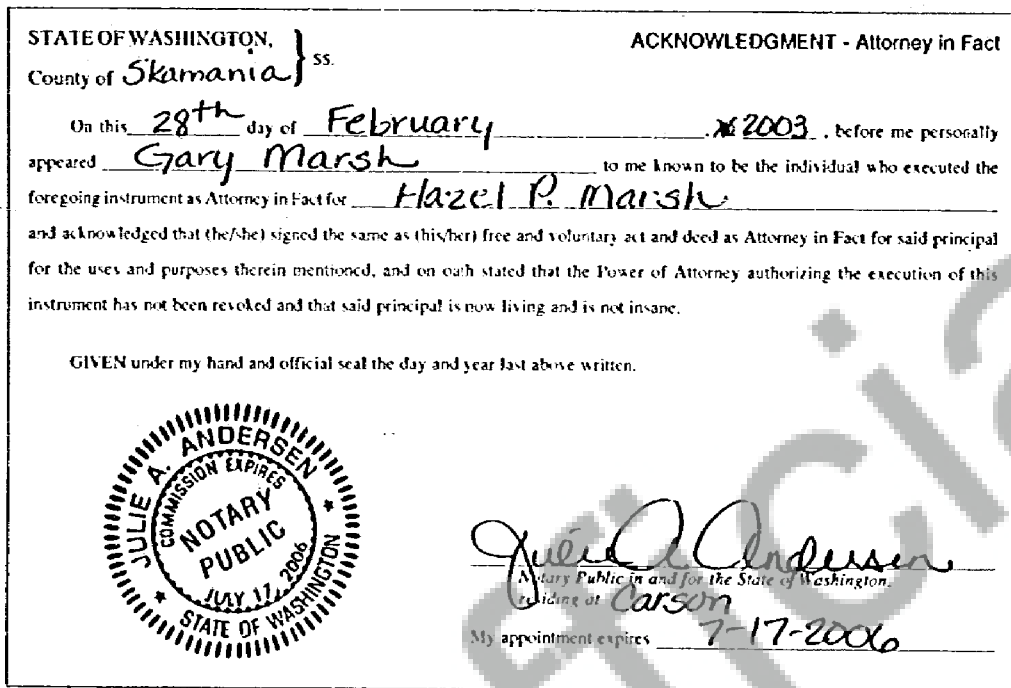 STATE OF WASHINGTON, } ss.
ACKNOWLEDGMENT - Attorney in Fact
County of Skamania
On this 28th day of February , 2003 , before me personally
appeared Gary Marsh to me known to be the individual who executed the
foregoing instrument as Attorney in Fact for Hazel P. Marsh
and acknowledged that (he/she) signed the same as (his/her) free and voluntary act and deed as Attorney in Fact for said principal
for the uses and purposes therein mentioned, and on oath stated that the Power of Attorney authorizing the execution of this
instrument has not been revoked and that said principal is now living and is not insane.
GIVEN under my hand and official seal the day and year last above written.
JULIE A. ANDERSEN
COMMISSION EXPIRES
NOTARY
PUBLIC
JULY 17, 2006
STATE OF WASHINGTON
Julie A Andersen
Notary Public in and for the State of Washington,
residing at Carson
My appointment expires 7-17-2006